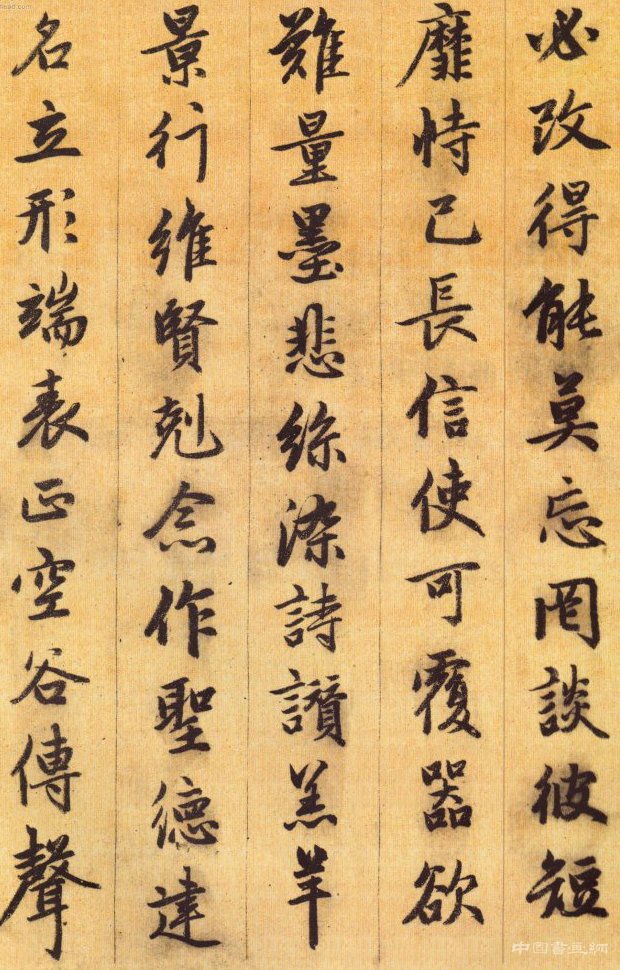 必改得能莫忘罔談彼短
靡恃己長信使可覆器欲
難量墨悲絲染詩讚羔羊
景行維賢剋念作聖德建
名立形端表正空谷傳聲
中国書画網